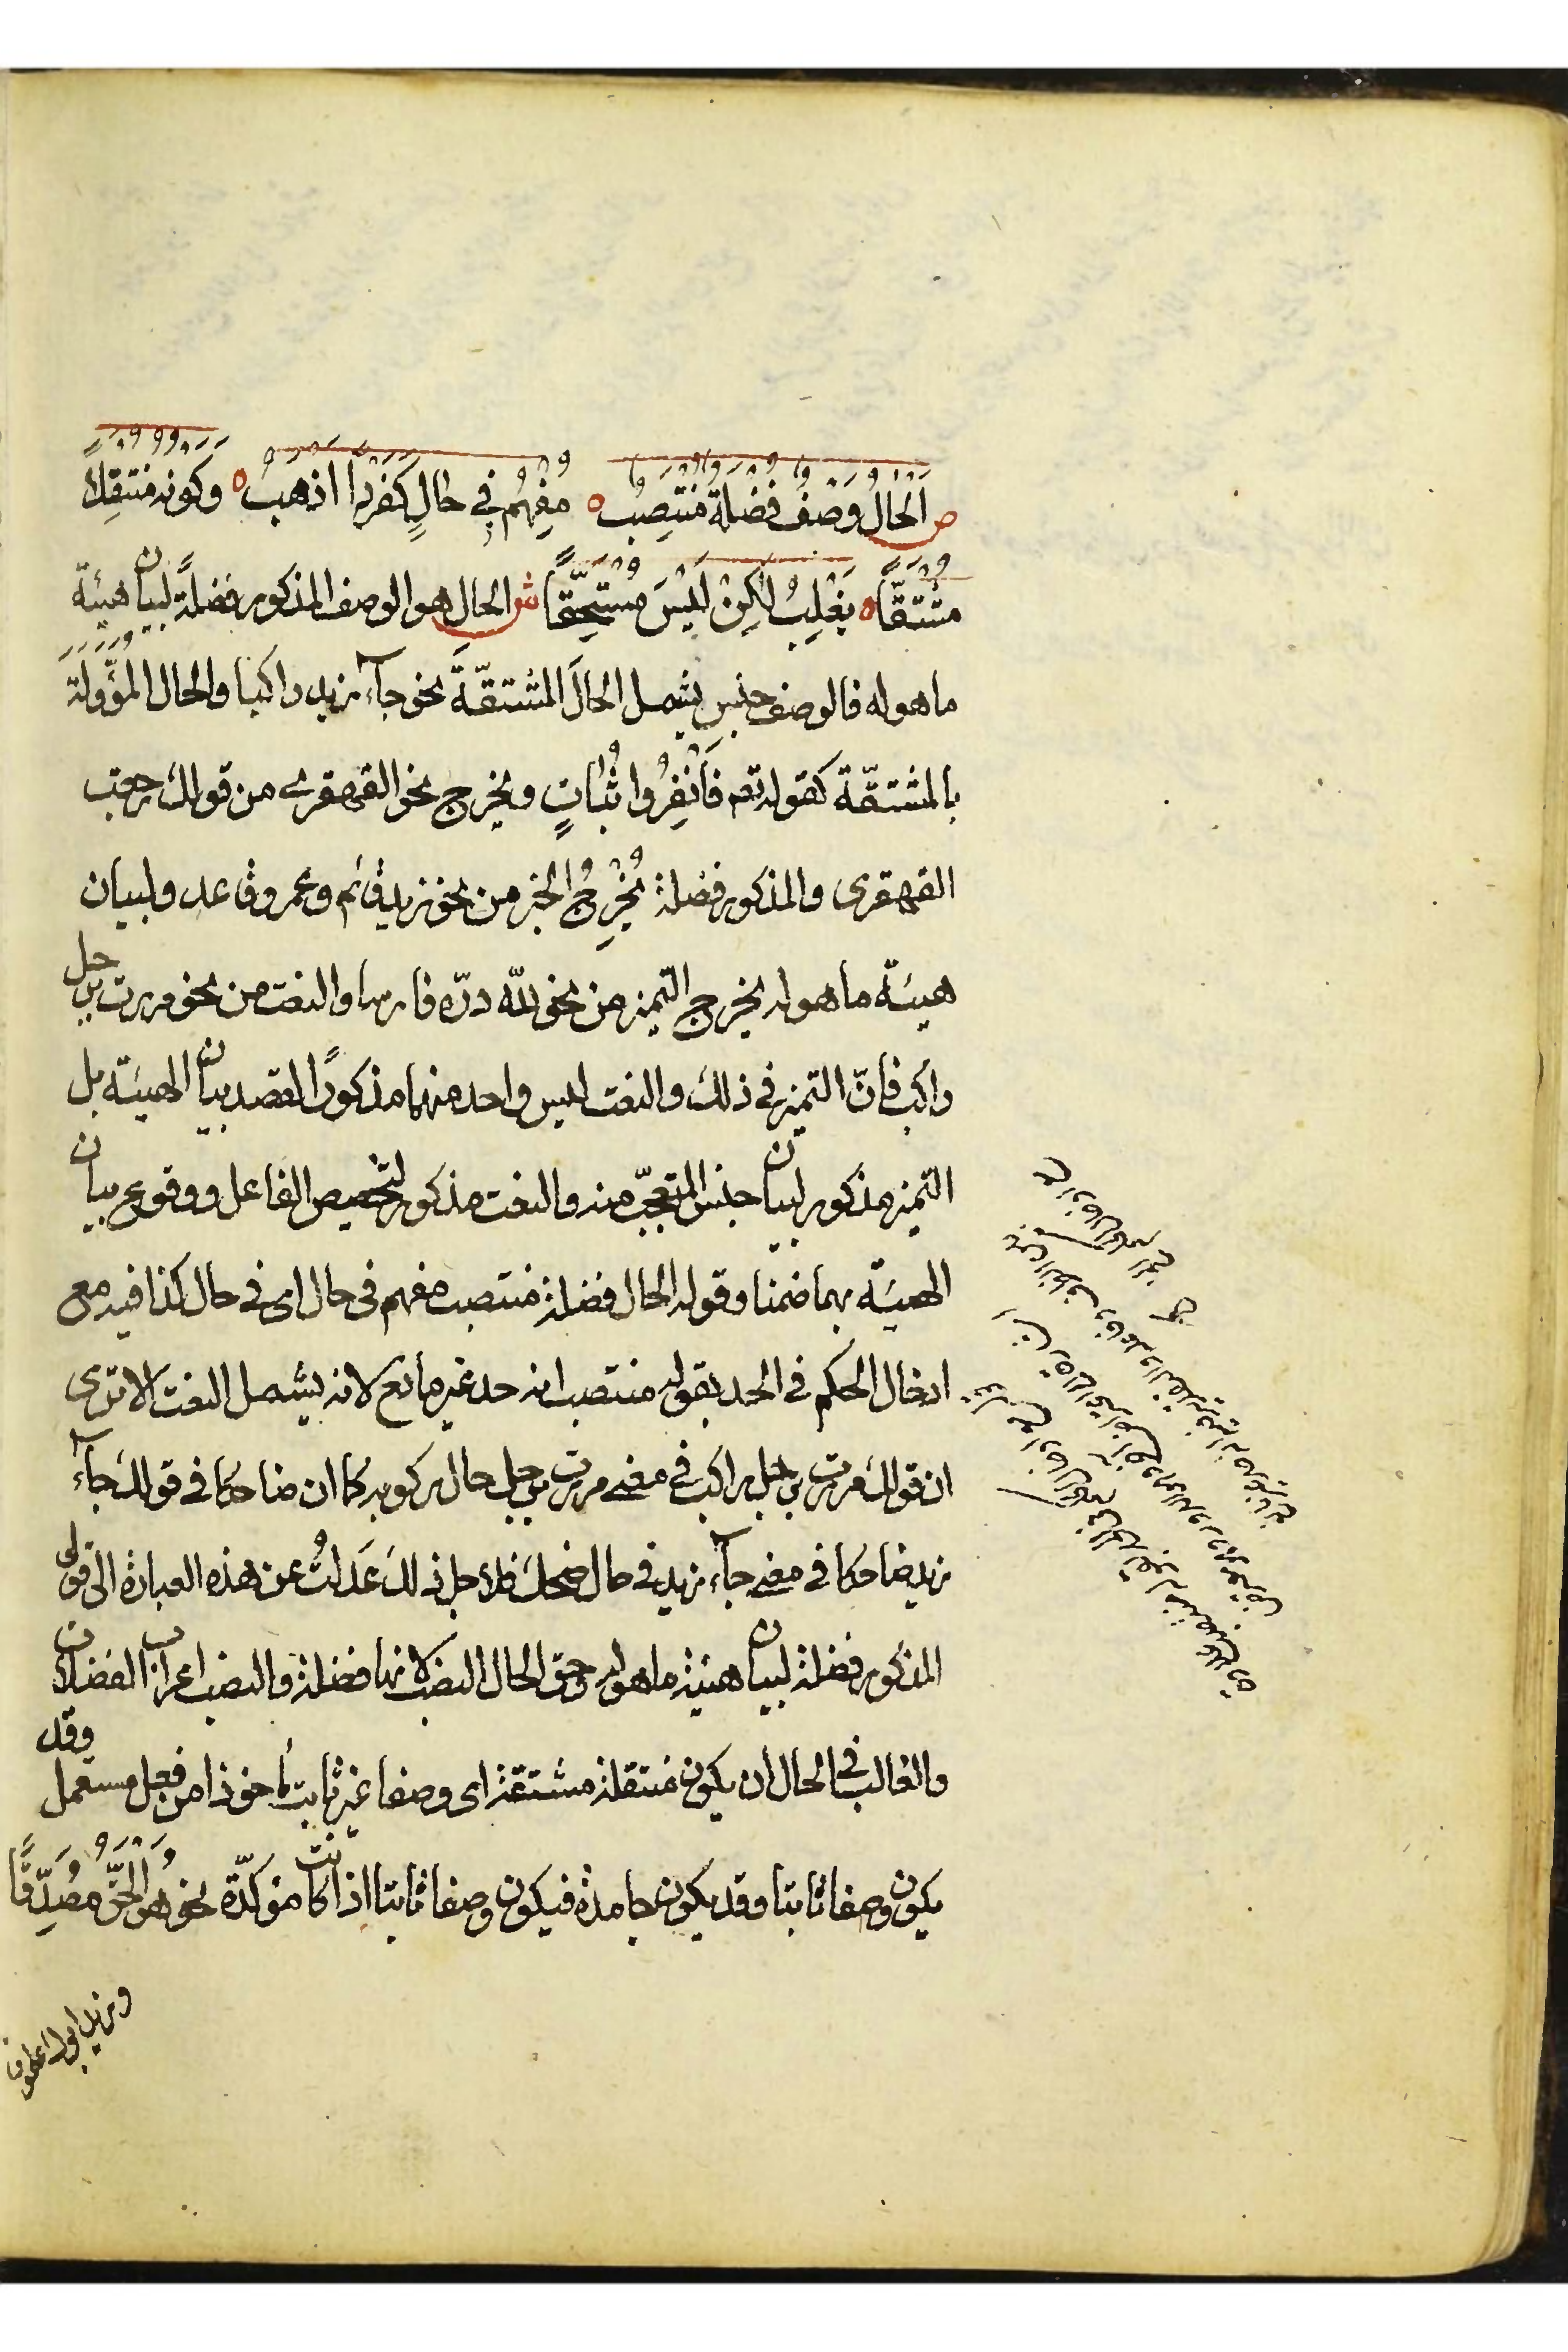 ص الحَالُ وَصْفٌ فَضْلَةٌ مُنْتَصِبُ ه مُفْهِمُ فِي حَالِ كَفَرْدًا اذهَبُ ه وَكَونه مُنتقِلًا
مُشْتَقًّا ه يَغْلِبُ لٰكِنْ لَيْسَ مُسْتَحِقًّا ش الحال هو الوصف المذكور فضلةً لبيان هيئة
ما هو له فالوصف جنس يشمل الحالَ المشتقّةَ نحو جآء زيد راكبا والحال المُؤَوَّلَةَ
بالمشتقّة كقوله تعم فَانْفِرُوا ثُبَاتٍ ويخرج نحو القهقرى من قولك رجعت
القهقرى والمذكور فضلة يُخْرِجُ الخبر من نحو زيد قائم وعمرو قاعد ولبيان
هيئة ما هو له يخرج التميز من نحو للّه درّه فارسا والنعت من نحو مررت برجل
راكب فانّ التميز في ذلك والنعت ليس واحد منهما مذكورًا لقصد بيان الهيئة بل
التميز مذكور لبيان جنس المتعجّب منه والنعت مذكور لتخصيص الفاعل ووقوع بيان
الهيئة بهما ضمنا وقوله الحال فضلة منتصب مفهم في حال اى في حال كذا فيه مع
ادخال الحكم في الحد بقوله منتصب انه حد غير مانع لانه يشمل النعت الا ترى
ان قولك مررت برجل راكب في معنى مررت برجل حال ركوبه كما ان ضاحكا في قولك جآء
زيد ضاحكا في معنى جآء زيد في حال ضحك فلاجل ذلك عَدَلتُ عن هذه العبارة الى قولى
المذكور فضلة لبيان هيئة ما هو له وحق الحال النصب لانها فضلة والنصب اعراب الفضلات
والغالب في الحال أن يكون منتقلة مشتقة اى وصفا غير ثابت مأخوذا من فعل مستعمل وقد
يكون وصفا ثابتا وقد يكون جامدة فيكون وصفا ثابتا اذا كانت مؤكدّة نحو هُوَ الْحَقُّ مُصَدِّقًا
وزيد ابوك عطوفا